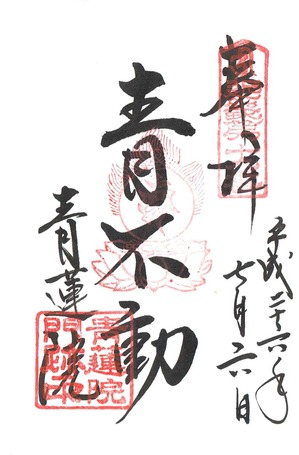 奉拝
平成二十六年
七月二六日
青不動
青蓮院
青蓮院
門跡印